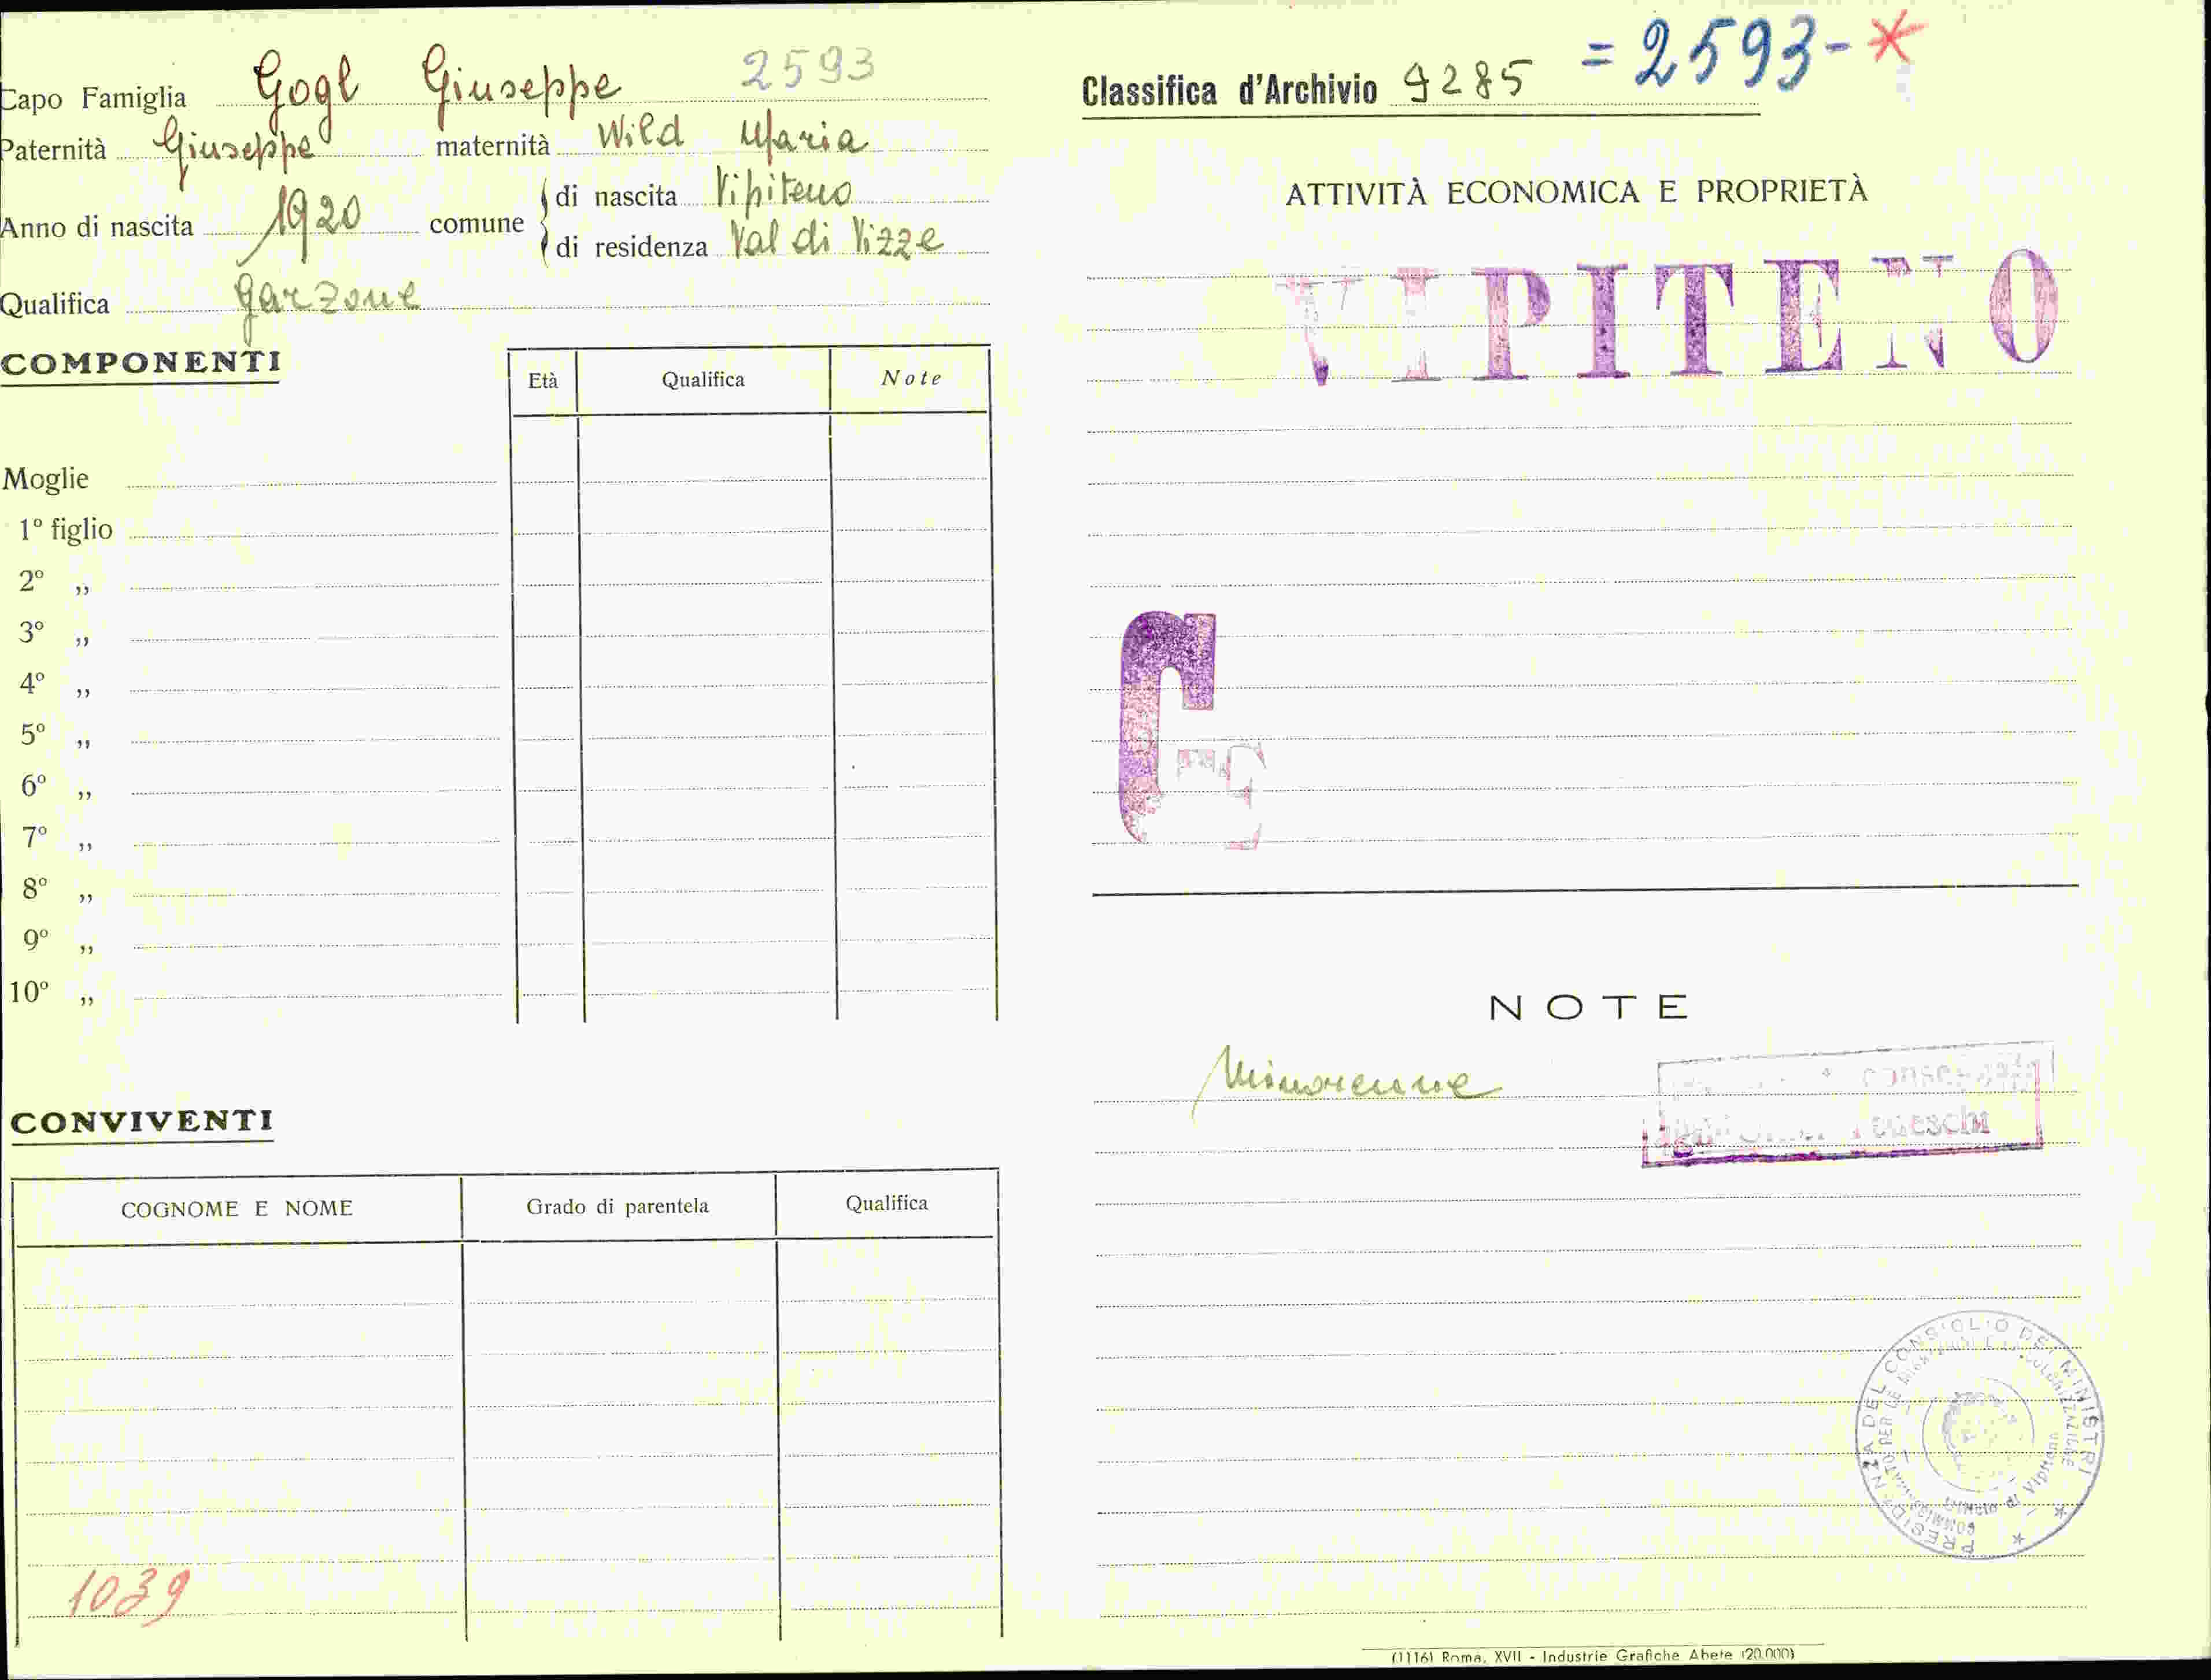 Capo Famiglia Gogl Giuseppe 2593
Paternità Giuseppe maternità Wild Maria
Anno di nascita 1920 comune di nascita Vipiteno
di residenza Val di Vizze
Qualifica garzone
COMPONENTI
Età Qualifica Note
Moglie
1º figlio
2º ,,
3º ,,
4º ,,
5º ,,
6º ,,
7º ,,
8º ,,
9º ,,
10º ,,
CONVIVENTI
COGNOME E NOME Grado di parentela Qualifica
1039
Classifica d'Archivio 9285 = 2593-*
ATTIVITÀ ECONOMICA E PROPRIETÀ
VIPITENO
C
E
NOTE
Minorenne
Tedeschi
PRESIDENZA DEL CONSIGLIO DEI MINISTRI
di Vipiteno
(1116) Roma, XVII - Industrie Grafiche Abete (20.000)